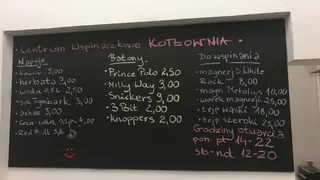 • Centrum Wspinaczkowe KOTŁOWNIA •
Napoje
• kawa 3,00
• herbata 3,00
• woda 0,5l 2,50
• sok Tymbark 3,00
• oshee 5,00
• Coca-cola 0,5l 4,00
• Red B.
Batony
• Prince Polo 2,50
• Milky Way 3,00
• Snickers 3,00
• 3Bit 2,00
• knoppers 2,00
Do wspinania
• magnezja White
Rock 8,00
• magn. Metolius 10,00
• worek magnezji 25,00
• tejp wąski 18,00
• tejp szeroki 25,00
Godziny otwarcia
pon-pt 14-22
sb-nd 12-20